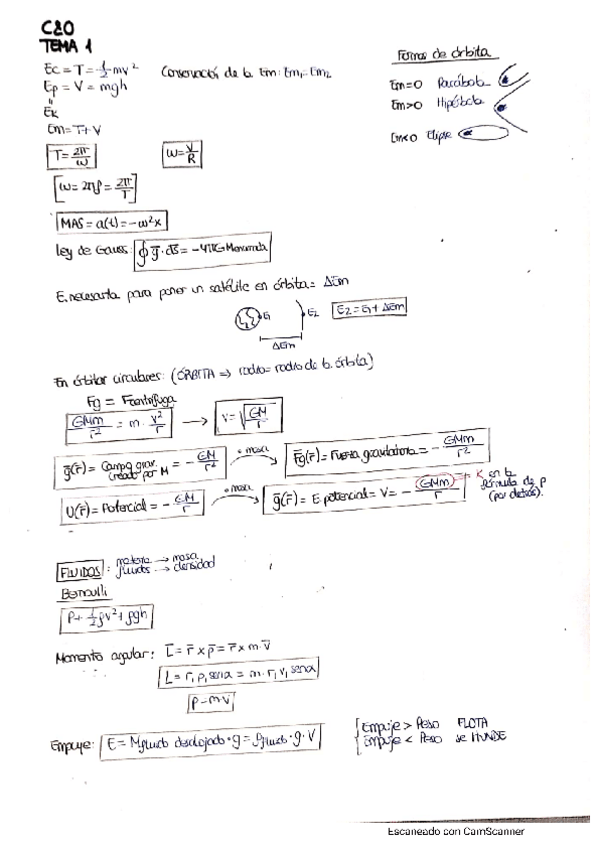 C20
TEMA 1
Ec = T = 1/2 mv²   Conservación de la Em: Em₁ = Em₂
Ep = V = mgh
"
Ek
Em = T + V
T = 2π/ω   ω = V/R
[ω = 2πf = 2π/T]
MAS = a(t) = -ω²x
Formas de órbita
Em=0 Parábola
Em>0 Hipérbola
Em<0 Elipse
ley de Gauss: ∮ g⃗ · ds⃗ = -4πG
E. necesaria para poner un satélite en órbita = ΔEm
E₁   E₂   E₂ = E₁ + ΔEm
ΔEm
En órbitas circulares: (ÓRBITA ⇒ radio = radio de la órbita)
Fg = Fcentrífuga
GMm/r² = m · v²/r → v = √(GM/r)
g⃗(r⃗) = Campo grav. creado por M = - GM/r²   · masa   Fg(r⃗) = Fuerza gravitatoria = - GMm/r²
U(r⃗) = Potencial = - GM/r   · masa   g⃗(r⃗) = E potencial = V = - GMm/r → K en la fórmula de p (por detrás).
FLUIDOS : materia → masa
fluidos → densidad
Bernoulli
P + 1/2 ρv² + ρgh
Momento angular: L⃗ = r⃗ x p⃗ = r⃗ x m · v⃗
L = r, p, senα = m · r, v, senα
p = m·v
Empuje: E = Mfluido desalojado · g = ρfluido · g · V
Empuje > Peso FLOTA
Empuje < Peso se HUNDE
Escaneado con CamScanner